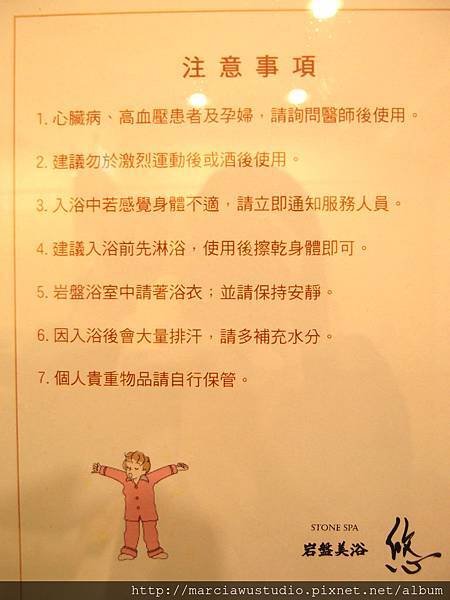 注意事項
1. 心臟病、高血壓患者及孕婦，請詢問醫師後使用。
2. 建議勿於激烈運動後或酒後使用。
3. 入浴中若感覺身體不適，請立即通知服務人員。
4. 建議入浴前先淋浴，使用後擦乾身體即可。
5. 岩盤浴室中請著浴衣；並請保持安靜。
6. 因入浴後會大量排汗，請多補充水分。
7. 個人貴重物品請自行保管。
STONE SPA
岩盤美浴 悠
http://marciawustudio.pixnet.net/album